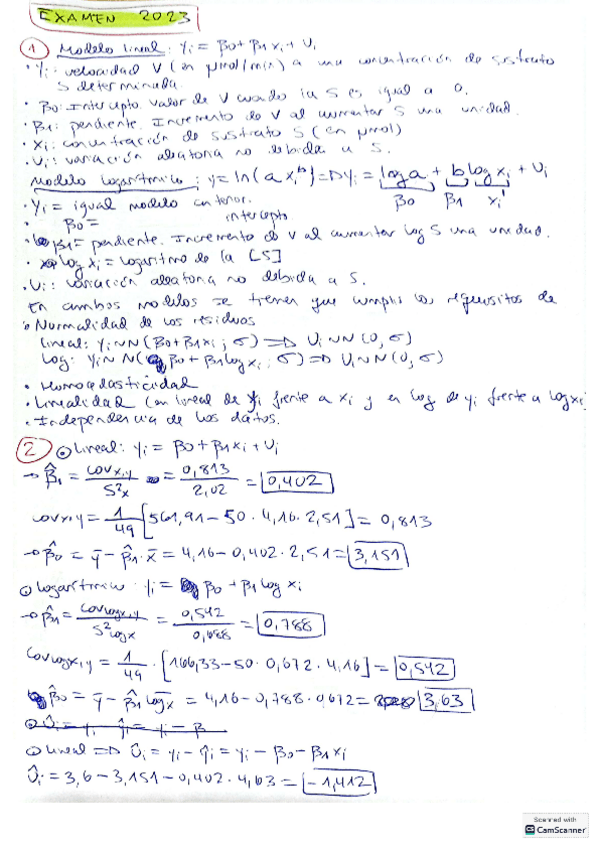 EXAMEN 2023
① Modelo lineal: yi = β0 + β1 xi + Ui
• Yi: velocidad V (en µmol/min) a una concentración de sustrato
S determinada.
• β0: Intercepto. Valor de V cuando la S es igual a 0.
• β1: pendiente. Incremento de V al aumentar S una unidad.
• xi: concentración de sustrato S (en µmol)
• Ui: variación aleatoria no debida a S.
Modelo logarítmico: y = ln(a xi^b) => yi = log a + b log xi + Ui
β0 β1 xi'
• Yi = igual modelo anterior.
β0 = intercepto
• β1 = pendiente. Incremento de V al aumentar log S una unidad.
• log xi = logaritmo de la [S]
• Ui: variación aleatoria no debida a S.
En ambos modelos se tienen que cumplir los requisitos de
• Normalidad de los residuos
lineal: yi ~ N(β0 + β1 xi; σ) => Ui ~ N(0, σ)
log: yi ~ N(β0 + β1 log xi; σ) => Ui ~ N(0, σ)
• Homocedasticidad
• Linealidad (en lineal de yi frente a xi y, en log de yi frente a log xi)
• Independencia de los datos.
② ⊙ Lineal: yi = β0 + β1 xi + Ui
→ β̂1 = cov x,y / S²x = 0,813 / 2,02 = 0,402
cov x,y = 1/49 [561,91 - 50 · 4,16 · 2,51] = 0,813
→ β̂0 = ȳ - β̂1 · x̄ = 4,16 - 0,402 · 2,51 = 3,151
⊙ logarítmico yi = β0 + β1 log xi
→ β̂1 = cov log x,y / S² log x = 0,542 / 0,688 = 0,788
cov log x,y = 1/49 · [166,33 - 50 · 0,672 · 4,16] = 0,542
β̂0 = ȳ - β̂1 log x = 4,16 - 0,788 · 0,672 = 3,63
⊙ Ûi = yi - ŷi = yi - β
⊙ Lineal => Ûi = yi - ŷi = yi - β0 - β1 xi
Ûi = 3,6 - 3,151 - 0,402 · 4,63 = -1,412
Scanned with
CamScanner